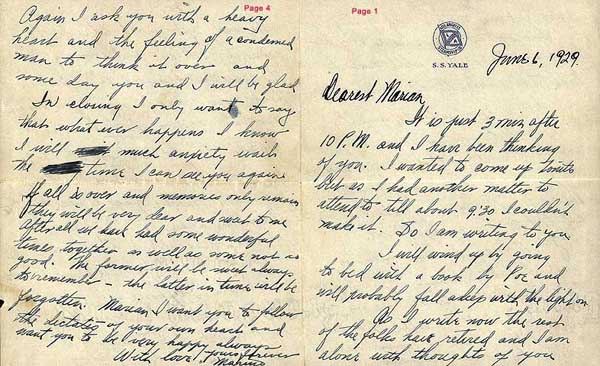 Page 4
Again I ask you with a heavy
heart and the feeling of a condemned
man to think it over and
some day you and I will be glad
In closing I only want to say
that what ever happens I know
I will much anxiety wait
the time I can see you again
If all is over and memories only remain
they will be very dear and sweet to me
After all we have had some wonderful
times together as well as some not so
good. The former will be sweet always
to remember - the latter in time will be
forgotten. Marian I want you to follow
the dictates of your own heart and
want you to be very happy always
With love Yours forever
Page 1
S.S. YALE
June 6, 1929.
Dearest Marian
It is just 3 min after
10 P.M. and I have been thinking
of you. I wanted to come up tonite
but as I had another matter to
attend to till about 9:30 I couldn't
make it. So I am writing to you
I will wind up by going
to bed with a book by Poe and
will probably fall asleep with the light on.
As I write now the rest
of the folks have retired and I am
alone with thoughts of you